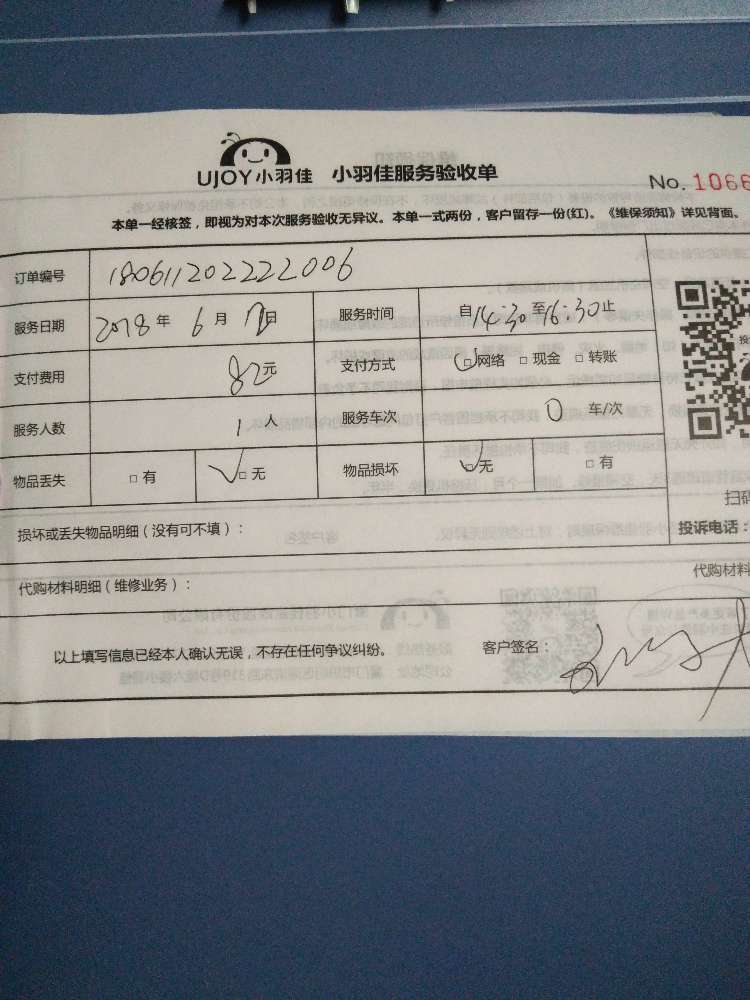 UJOY小羽佳 小羽佳服务验收单
No. 1066
本单一经核签，即视为对本次服务验收无异议。本单一式两份，客户留存一份(红)。《维保须知》详见背面。
订单编号 180611202222006
服务日期 2018 年 6 月 12 日 服务时间 自 14:30 至 16:30 止
支付费用 82 元 支付方式 □网络 □ 现金 □ 转账
服务人数 1 人 服务车次 0 车/次
物品丢失 □ 有 □ 无 物品损坏 □无 □ 有
扫码
损坏或丢失物品明细（没有可不填）： 投诉电话：
代购材料明细（维修业务）： 代购材料
以上填写信息已经本人确认无误，不存在任何争议纠纷。 客户签名：